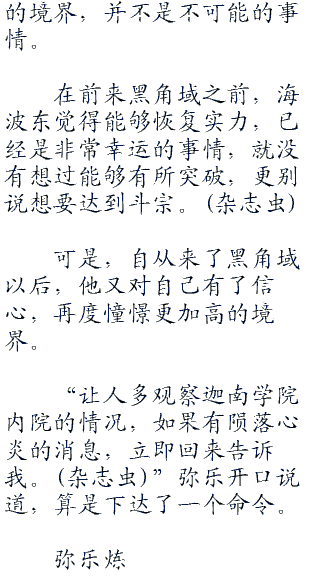 的境界，并不是不可能的事
情。
在前来黑角域之前，海
波东觉得能够恢复实力，已
经是非常幸运的事情，就没
有想过能够有所突破，更别
说想要达到斗宗。(杂志虫)
可是，自从来了黑角域
以后，他又对自己有了信
心，再度憧憬更加高的境
界。
“让人多观察迦南学院
内院的情况，如果有陨落心
炎的消息，立即回来告诉
我。(杂志虫)”弥乐开口说
道，算是下达了一个命令。
弥乐炼